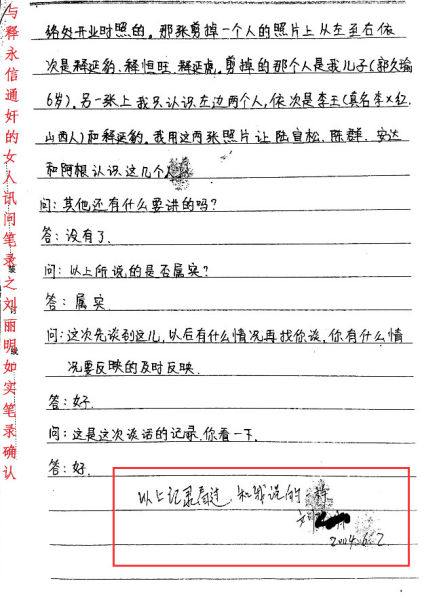 与释永信通奸的女人讯问笔录之刘丽明如实笔录确认
络处开业时照的。那张剪掉一个人的照片上从左至右依
次是释延豹、释恒旺、释延虎。剪掉的那个人是我儿子(郭久瑜
6岁)。另一张上我只认识左边两个人,依次是李玉(真名李×红,
山西人)和释延豹。我用这两张照片让陆宣松、陈群、安达
和阿根认识这几个人
问:其他还有什么要讲的吗?
答:没有了.
问:以上所说的是否属实?
答:属实.
问:这次先谈到这儿,以后有什么情况再找你谈,你有什么情
况要反映的及时反映.
答:好.
问:这是这次谈话的记录,你看一下.
答:好.
以上记录看过,和我说的一样
2004.6.2